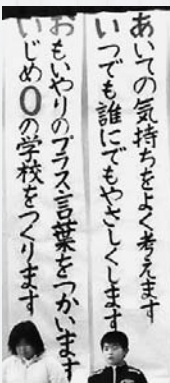 あいての気持ちをよく考えます
いつでも誰にでもやさしくします
おもいやりのプラス言葉をつかいます
いじめ0の学校をつくります